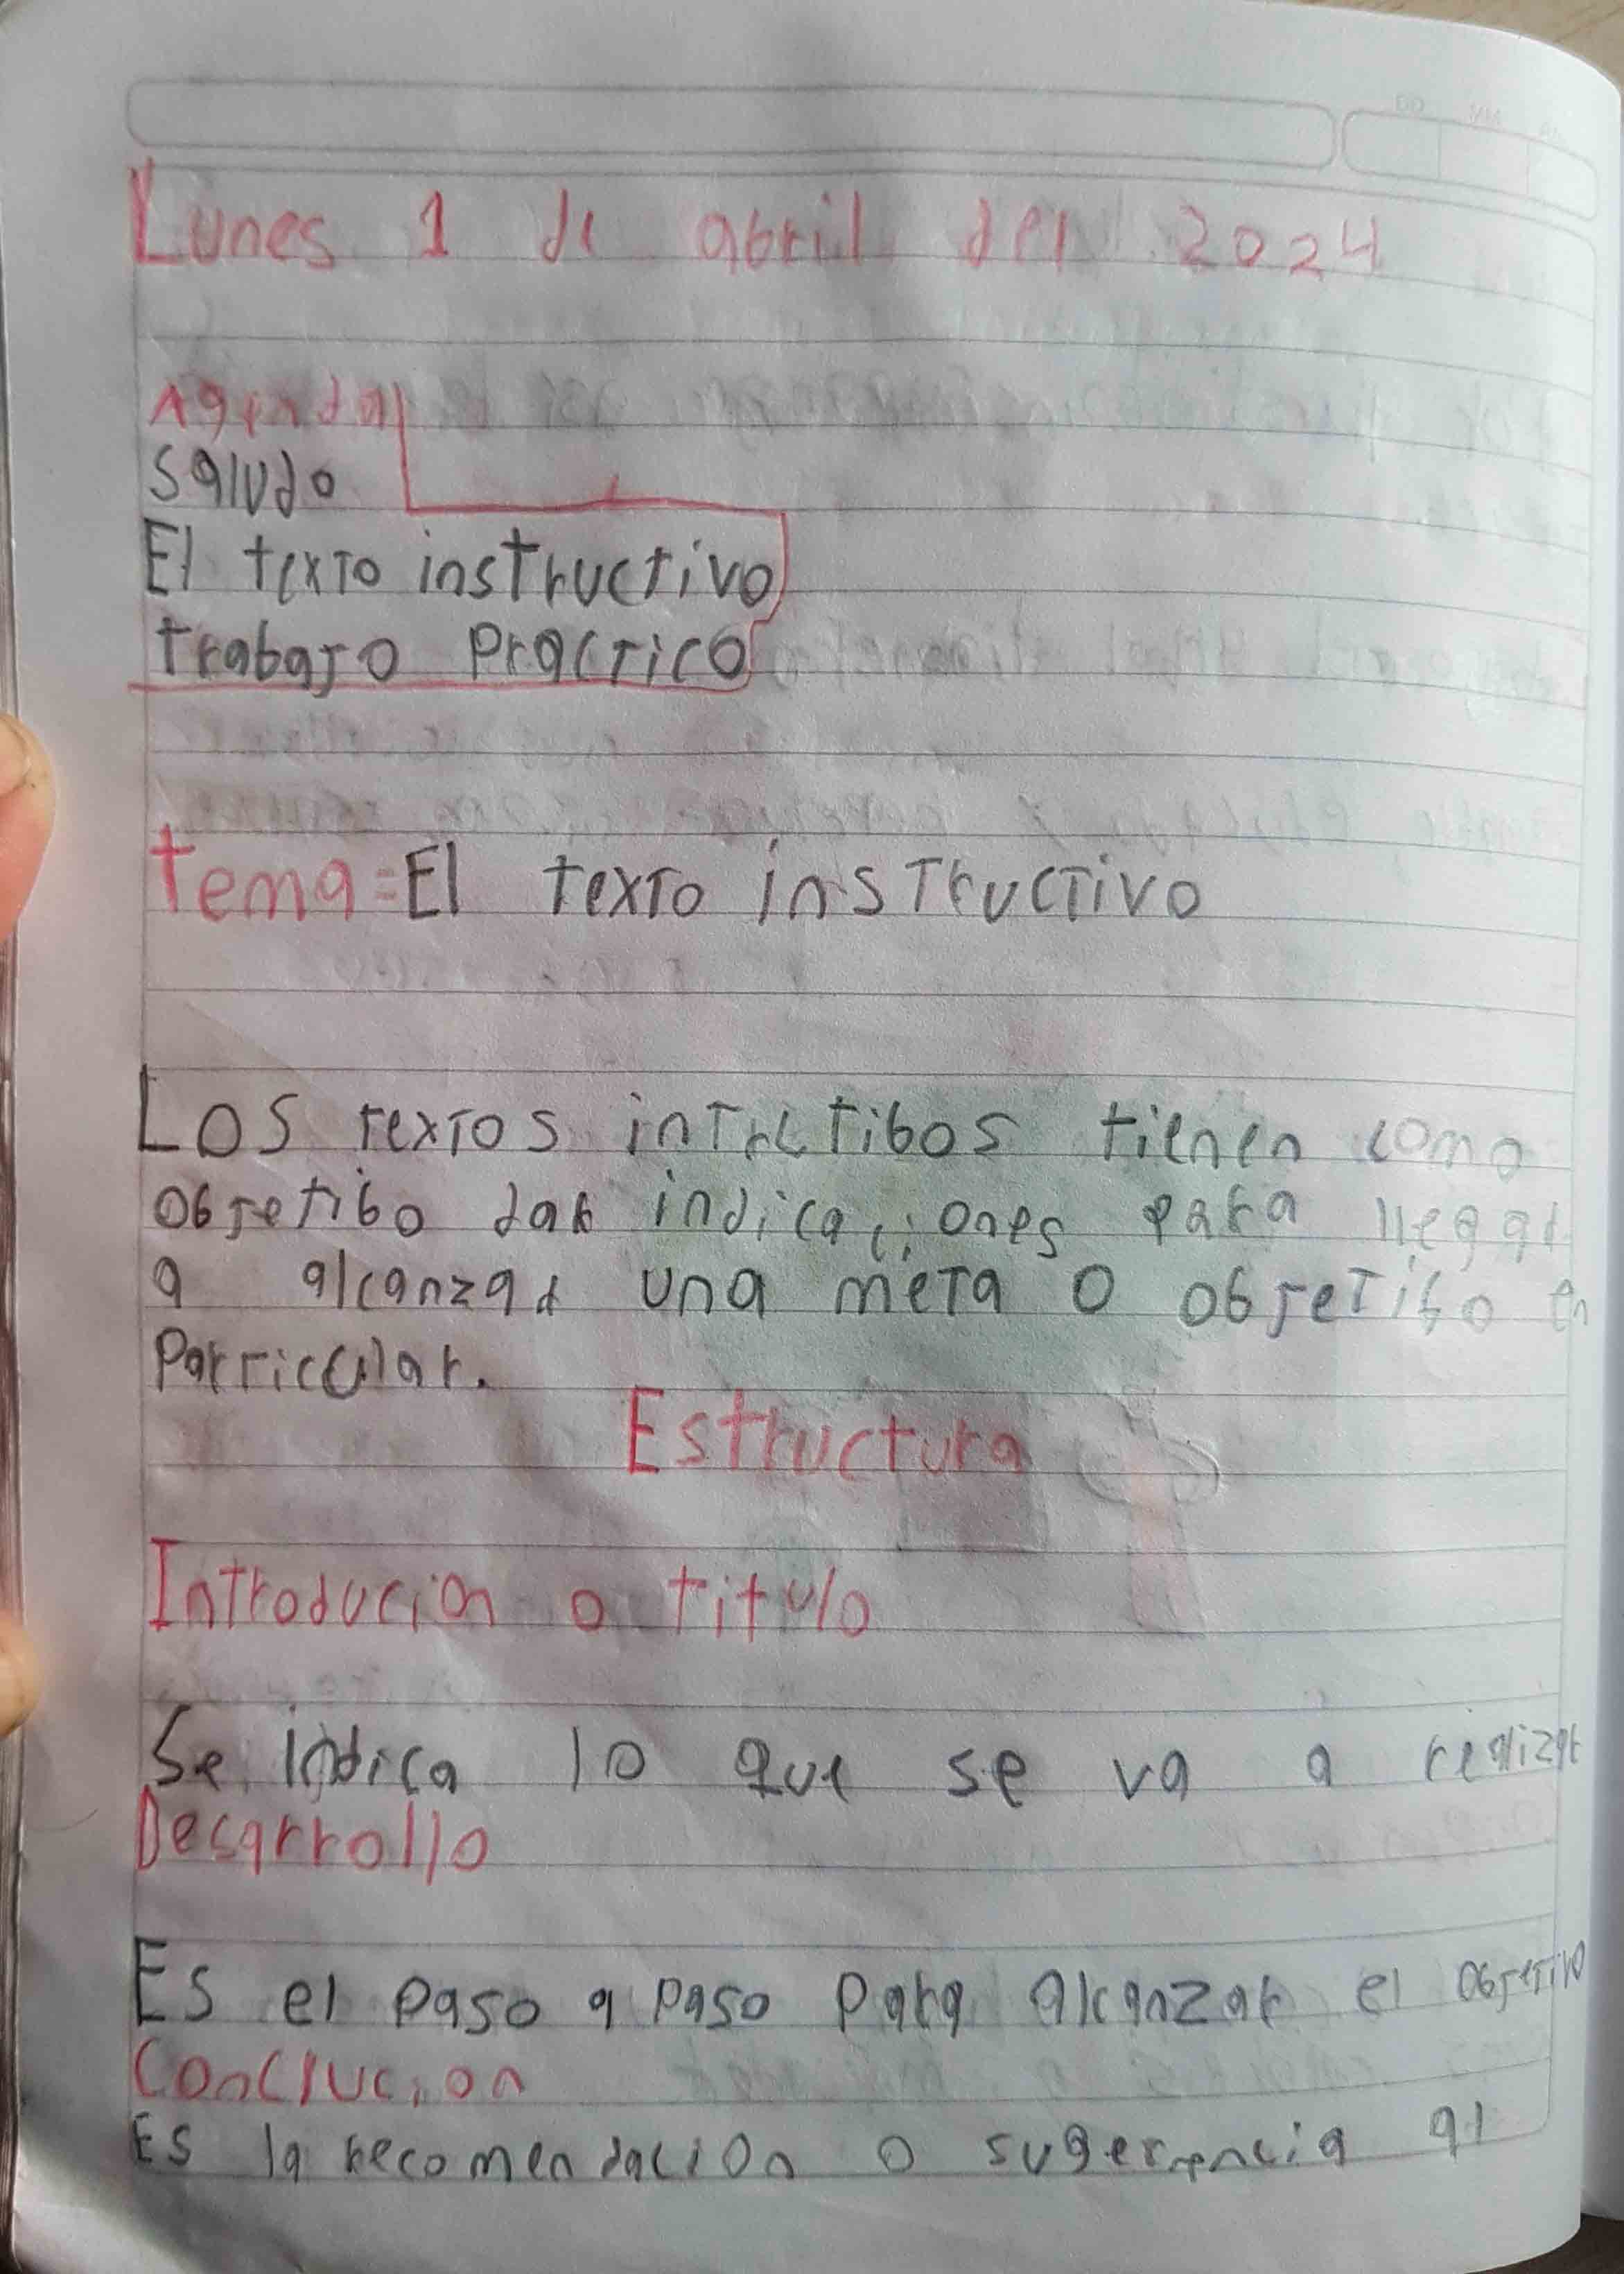 Lunes 1 de abril del 2024
Agenda
Saludo
El texto instructivo
trabajo Practico
tema = El texto instructivo
Los textos intrctibos tienen como
objetibo dar indicaciones para llegar
a alcanzar una meta o objetibo en
Particular.
Estructura
Introducion o titulo
Se indica lo que se va a realizar
Desarrollo
Es el paso a paso para alcanzar el objetivo
Conclucion
Es la recomendacion o sugerencia al